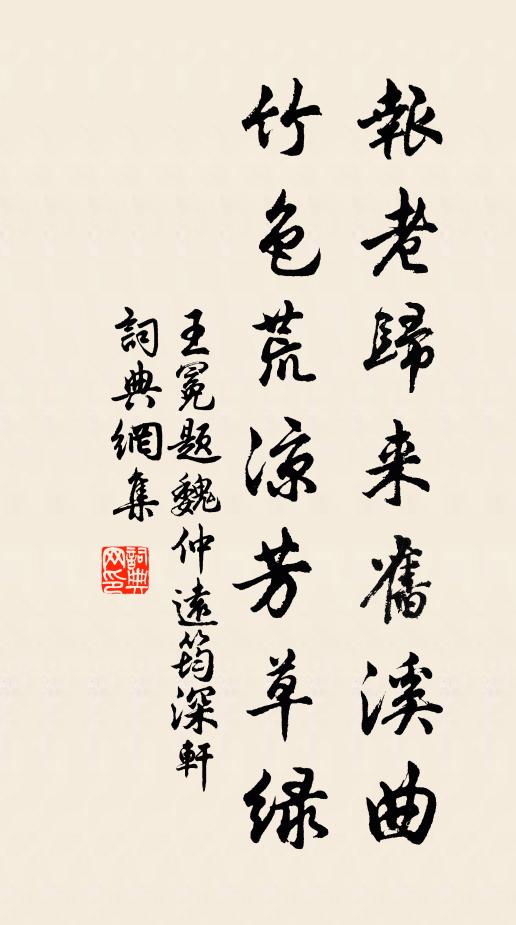 報老歸来舊溪曲
竹色荒凉芳草绿
王冕題魏仲遠筠深軒
詞典網集
詞典网印